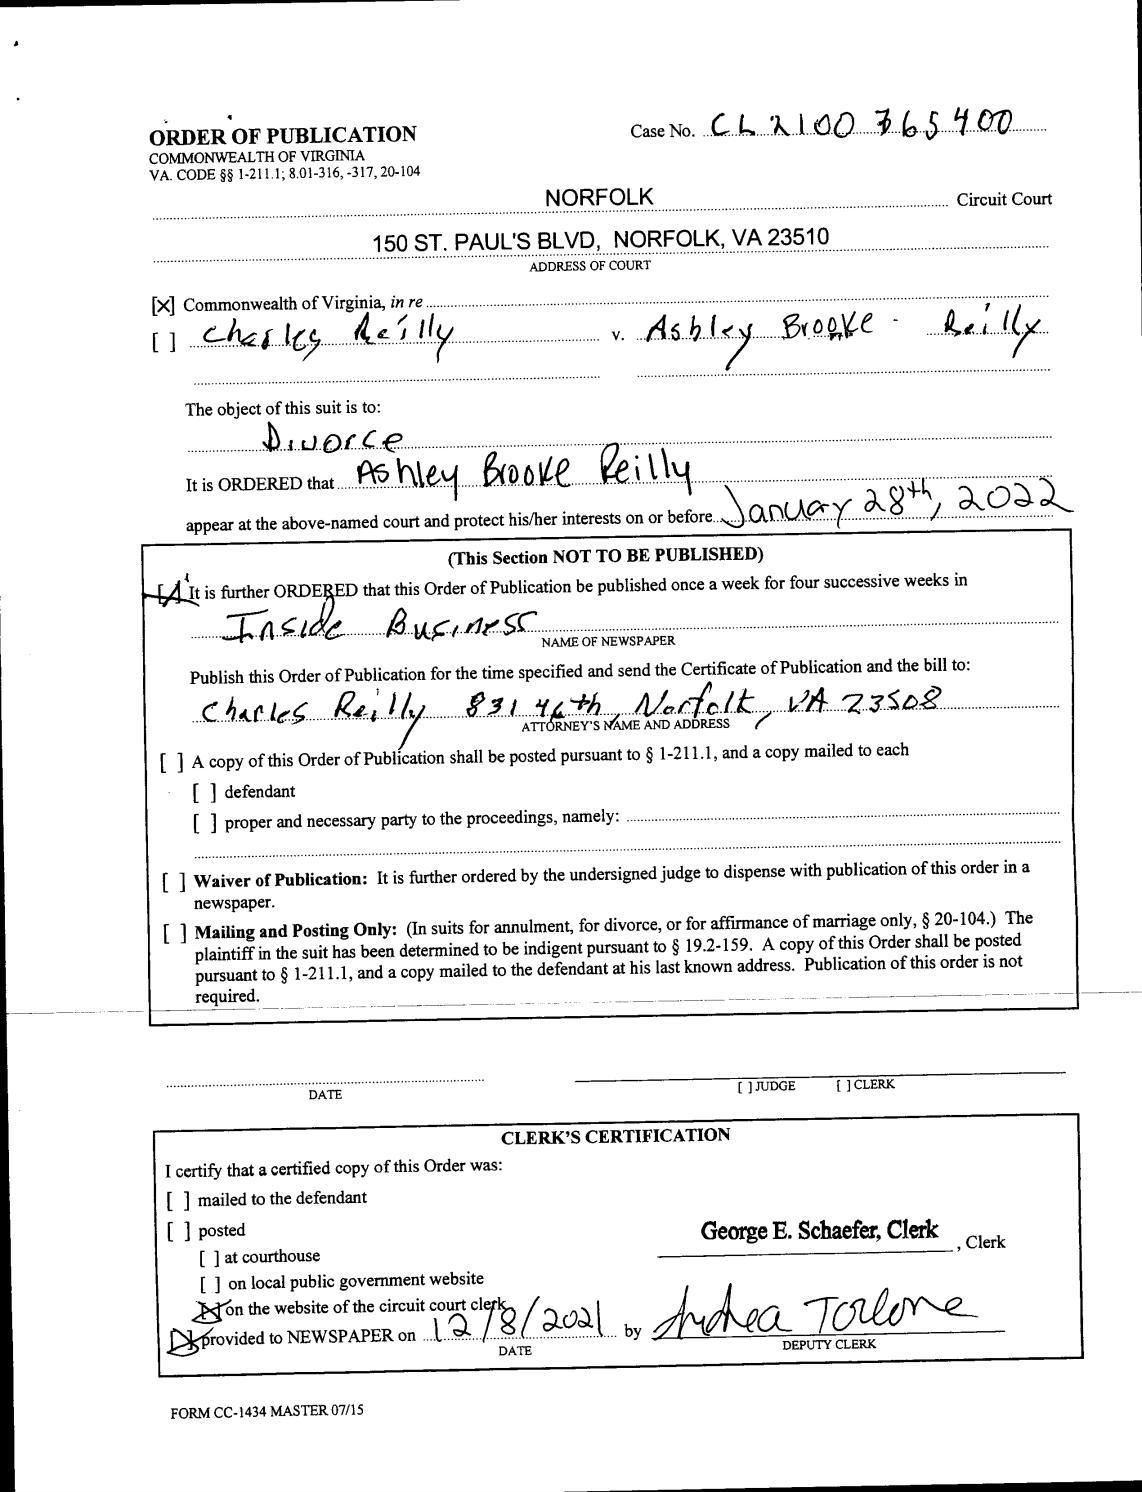 ORDER OF PUBLICATION
Case No. CL2100765400
COMMONWEALTH OF VIRGINIA
VA. CODE §§ 1-211.1; 8.01-316, -317, 20-104
NORFOLK Circuit Court
150 ST. PAUL'S BLVD, NORFOLK, VA 23510
ADDRESS OF COURT
[X] Commonwealth of Virginia, in re
[ ] Charles Reilly v. Ashley Brooke Reilly
The object of this suit is to:
Divorce
It is ORDERED that Ashley Brooke Reilly
appear at the above-named court and protect his/her interests on or before January 28th, 2022
(This Section NOT TO BE PUBLISHED)
[X] It is further ORDERED that this Order of Publication be published once a week for four successive weeks in
Inside Business
NAME OF NEWSPAPER
Publish this Order of Publication for the time specified and send the Certificate of Publication and the bill to:
Charles Reilly 831 46th, Norfolk, VA 23508
ATTORNEY'S NAME AND ADDRESS
[ ] A copy of this Order of Publication shall be posted pursuant to § 1-211.1, and a copy mailed to each
[ ] defendant
[ ] proper and necessary party to the proceedings, namely:
[ ] Waiver of Publication: It is further ordered by the undersigned judge to dispense with publication of this order in a
newspaper.
[ ] Mailing and Posting Only: (In suits for annulment, for divorce, or for affirmance of marriage only, § 20-104.) The
plaintiff in the suit has been determined to be indigent pursuant to § 19.2-159. A copy of this Order shall be posted
pursuant to § 1-211.1, and a copy mailed to the defendant at his last known address. Publication of this order is not
required.
DATE
[ ] JUDGE [ ] CLERK
CLERK'S CERTIFICATION
I certify that a certified copy of this Order was:
[ ] mailed to the defendant
[ ] posted
George E. Schaefer, Clerk , Clerk
[ ] at courthouse
[ ] on local public government website
[X] on the website of the circuit court clerk
[X] provided to NEWSPAPER on 12/8/2021 by Andrea Torlone
DATE
DEPUTY CLERK
FORM CC-1434 MASTER 07/15